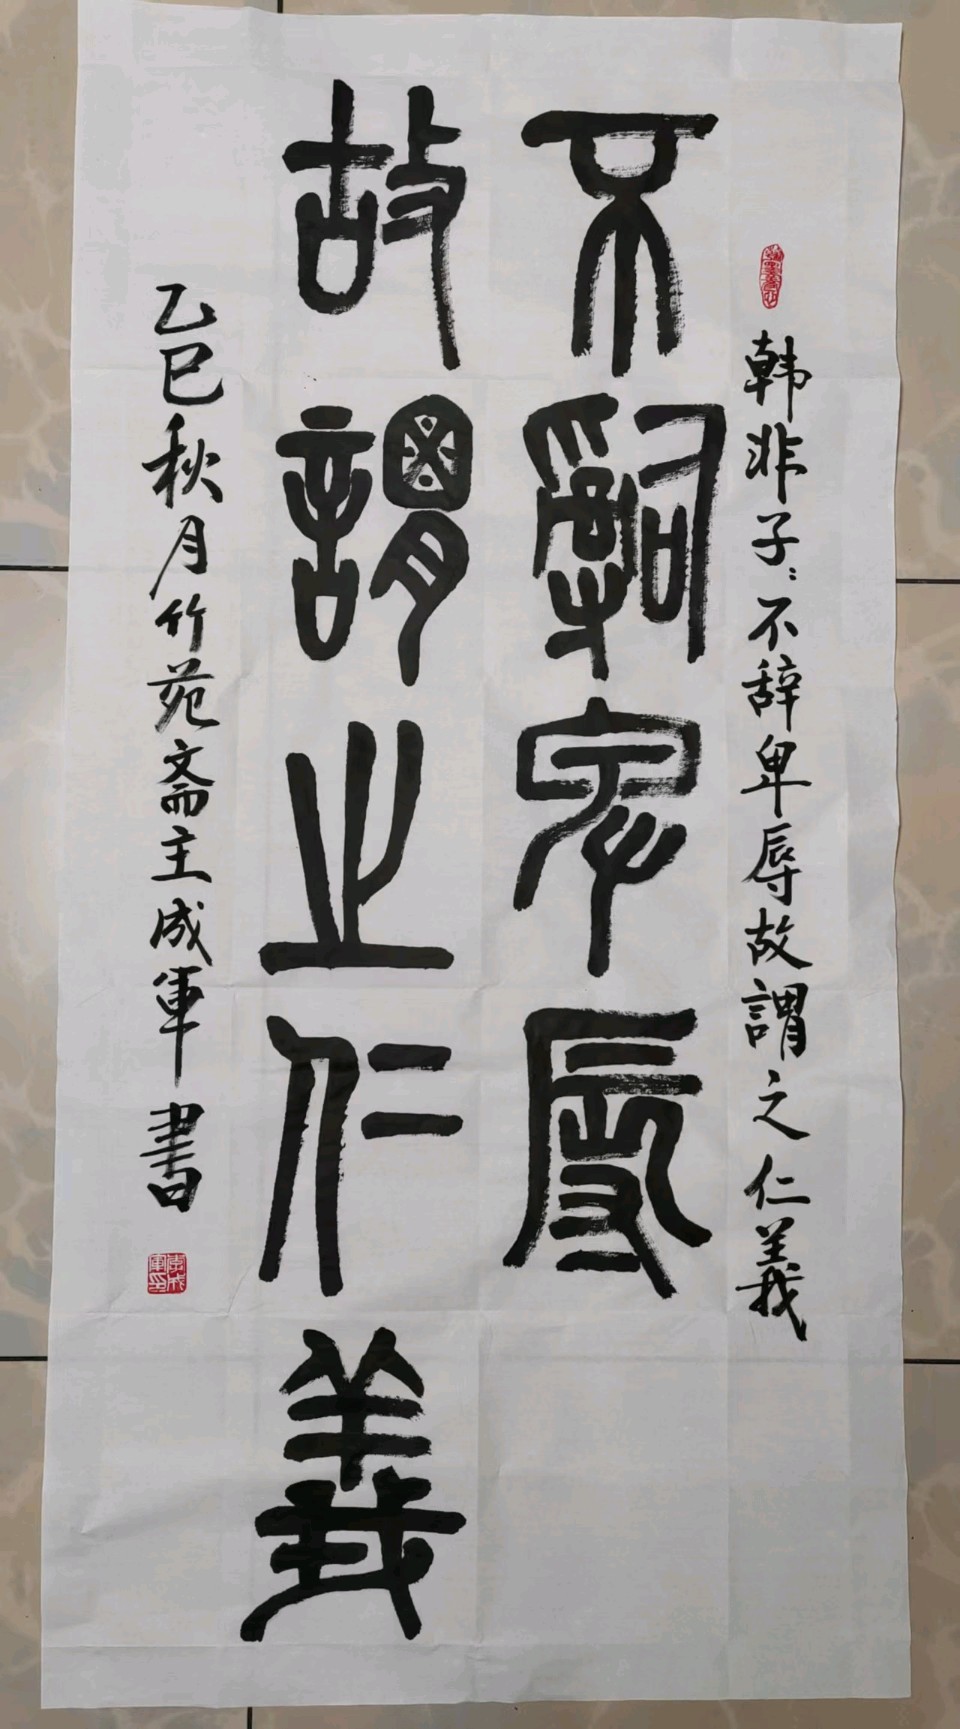 韩非子：不辞卑辱故謂之仁義
不辭卑辱
故謂之仁義
乙巳秋月竹苑斋主成軍書